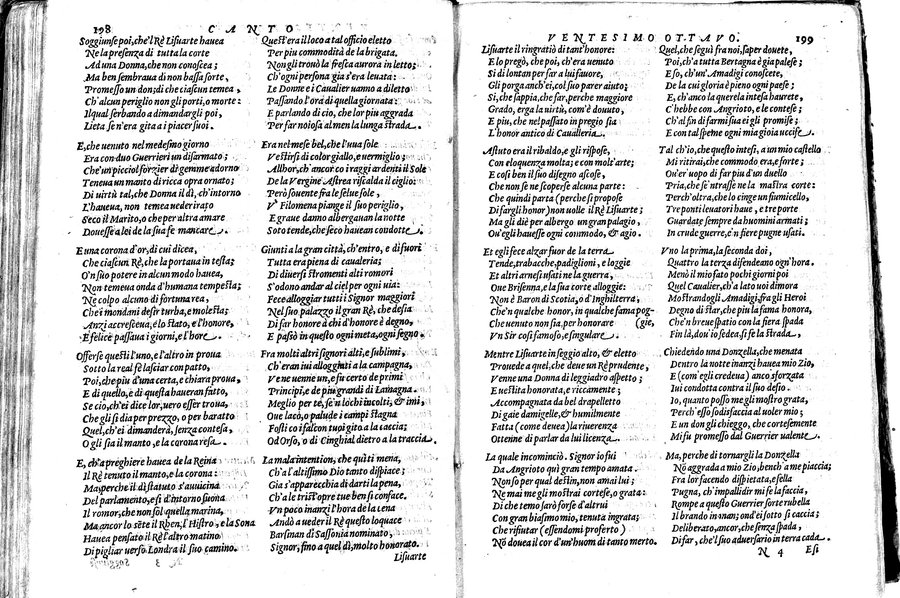 198 CANTO
Soggiunse poi, che'l Rè Lisuarte hauea
Ne la presenza di tutta la corte
Ad una Donna, che non conoscea;
Ma ben sembraua di non bassa sorte,
Promesso un don; di che ciascun temea,
Ch'alcun periglio non gli porti, o morte:
Il qual serbando a dimandargli poi,
Lieta se n'era gita a i piacer suoi.
E, che uenuto nel medesmo giorno
Era con duo Guerrieri un disarmato;
Che'un picciol forzier di gemme adorno
Teneua un manto di ricca opra ornato;
Di uirtù tal, che Donna il dì, ch'intorno
L'haueua, non temea uederirato
Seco il Marito, o che per altra amare
Douesse a lei de la sua fe mancare.
E una corona d'or, di cui dicea,
Che ciascun Rè, che la portaua in testa;
O'n suo potere in alcun modo hauea,
Non temea onda d'humana tempesta;
Ne colpo alcuno di fortuna rea,
Che i mondani desir turba, e molesta;
Anzi accresceua, e lo stato, e l'honore,
E felice passaua i giorni, e l'hore.
Offerse questi l'uno, e l'altro in proua
Sotto la real fè lasciar con patto,
Poi, che più d'una certa, e chiara proua,
E di quello, e di questa hauean fatto,
Se cio, ch'ei dice lor, uero esser troua,
Che gli si dia per prezzo, o per baratto
Quel, ch'ei dimanderà, senza contesa,
O gli sia il manto, e la corona resa.
E, ch'a preghiere hauea de la Reina
Il Rè tenuto il manto, e la corona:
Ma, perche il dì statuto s'auuicina
Del parlamento, e si d'intorno suona
Il romor, che non sol quella marina,
Ma ancor lo sete il Rhen, l'Histro, e la Sona
Hauea pensato il Rè l'altro matino
Di pigliar uerso Londra il suo camino.
Quest'era il loco a tal officio eletto
Per piu commodità de la brigata.
Non gli trouò la fresca aurora in letto;
Ch'ogni persona gia s'era leuata:
Le Donne e i Caualier uanno a diletto
Passando l'ora di quella giornata:
E parlando di cio, che lor piu aggrada
Per far noiosa almen la lunga strada.
Era nel mese bel, che l'uua sole
Vestirsi di color giallo, e uermiglio;
Allhor, ch'ancor co i raggi ardenti il Sole
De la Vergine Astrea riscalda il ciglio:
Però souente fra le selue sole,
V' Filomena piange il suo periglio,
E graue danno albergauan la notte
Soto tende, che seco hauean condotte.
Giunti a la gran città, ch'entro, e di fuori
Tutta era piena di caualeria;
Di diuersi stromenti altri romori
S'odono andar al ciel per ogni uia:
Fece alloggiar tutti i Signor maggiori
Nel suo palazzo il gran Rè, che desia
Di far honore à chi d'honore è degno,
E passò in questo ogni meta, ogni segno.
Fra molti altri signori alti, e sublimi,
Ch'eran iui alloggiati a la campagna,
Ve ne uenne un, e fù certo de primi
Principi, e de piu grandi di Lamagna.
Meglio per te, se'n lochi incolti, & imi,
Oue lacò, o palude i campi stagna
Fosti co i falcon tupi gito a la caccia;
Od Orso, o di Cinghial dietro a la traccia.
La mala intention, che qui ti mena,
Ch'a l'altissimo Dio tanto dispiace;
Gia s'apparecchia di darti la pena,
Ch'a le trist'opre tue ben si conface.
Vn poco inanzi l'hora de la cena
Andò a ueder il Rè questo loquace
Barsinan di Sassonia nominato,
Signor, fino a quel dì, molto honorato.
Lisuarte
VENTESIMO OTTAVO. 199
Lisuarte il ringratiò di tant'honore:
E lo pregò, che poi, ch'era uenuto
Si di lontan per far a lui fauore,
Gli porga anch'ei, col suo parer aiuto;
Si, che sappia, che far, perche maggiore
Grado, erga la uirtù, com'è douuto,
E piu, che nel passato in pregio sia
L'honor antico di Caualleria.
Astuto era il ribaldo, e gli rispose,
Con eloquenza molta; e con molt'arte;
E così ben il suo disegno ascose,
Che non se ne scoperse alcuna parte:
Che quindi parta (perche si propose
Di fargli honor) non uolle il Rè Lisuarte;
Ma gli diè per albergo un gran palagio,
Ou'egli hauesse ogni commodo, & agio.
Et egli fece alzar fuor de la terra
Tende, trabacche, padiglioni, e loggie
Et altri arnesi usati ne la guerra,
Oue Brisenna, e la sua corte alloggie:
Non è Baron di Scotia, o d'Inghilterra,
Che'n qualche honor, in qualche sama pog-
Che uenuto non sia, per honorare (gie,
Vn Sir così famoso, e singulare.
Mentre Lisuarte in seggio alto, & eletto
Prouede a quel, che deue un Rè prudente,
Venne una Donna di leggiadro aspetto;
E uestita honorata, e riccamente;
Accompagnata da bel drapelletto
Di gaie damigelle, & humilmente
Fatta (come deuea) la riuerenza
Ottenne di parlar da lui licenza.
La quale incominciò. Signor io fui
Da Angrioto quì gran tempo amata.
Non so per qual destin, non amai lui;
Ne mai me gli mostrai cortese, o grata:
Di che temo sarò forse d'altrui
Con gran biasimo mio, tenuta ingrata;
Che rifiutar (essendomi proserto)
Nò douea il cor d'un'huom di tanto merto.
Quel, che seguì fra noi, saper douete,
Poi, ch'a tutta Bertagna è gia palese;
E so, ch'un'Amadigi conoscete,
De la cui gloria è pieno ogni paese;
E, ch'anco la querela intesa haurete,
C'hebbe con Angrioto, e le contese,
Ch'al fin di farmi sua ei gli promise;
E con tal speme ogni mia gioia uccise.
Tal ch'io, che questo intesi, a un mio castello
Mi ritirai, che commodo era, e forte;
Ou'er'uopo di far piu d'un duello
Pria, che s'entrasse ne la mastra corte:
Perch'oltra, che lo cinge un fiumicello,
Tre ponti leuatori haue, e tre porte
Guardate sempre da huomini armati;
In crude guerre, e'n fiere pugne usati.
Vno la prima, la seconda doi,
Quattro la terza difendeano ogn'hora.
Menò il mio fato pochi giorni poi
Quel Caualier, ch'a lato uoi dimora
Mostrandogli Amadigi, fra gli Heroi
Degno di star, che piu la fama honora,
Che'n breue spatio con la fiera spada
Fin là, dou'io sedea, si fe la strada.
Chiedendo una Donzella, che menata
Dentro la notte inanzi hauea mio Zio,
E (com'egli credeua) anco sforzata
Iui condotta contra il suo desio.
Io, quanto posso me gli mostro grata,
Perch'esso sodisfaccia al uoler mio;
E un don gli chieggo, che cortesemente
Mi fu promesso dal Guerrier ualente.
Ma, perche di tornargli la Donzella
Nò aggrada a mio Zio, bench'a me piaccia;
Fra lor facendo dispietata, e fella
Pugna, ch'impallidir mi fe la faccia,
Rompe a questo Guerrier sorte rubella
Il brando in man; ond'ei sotto si caccia;
Deliberato, ancor, che senza spada,
Di far, che'l suo aduersario in terra cada.
N 4 Esi